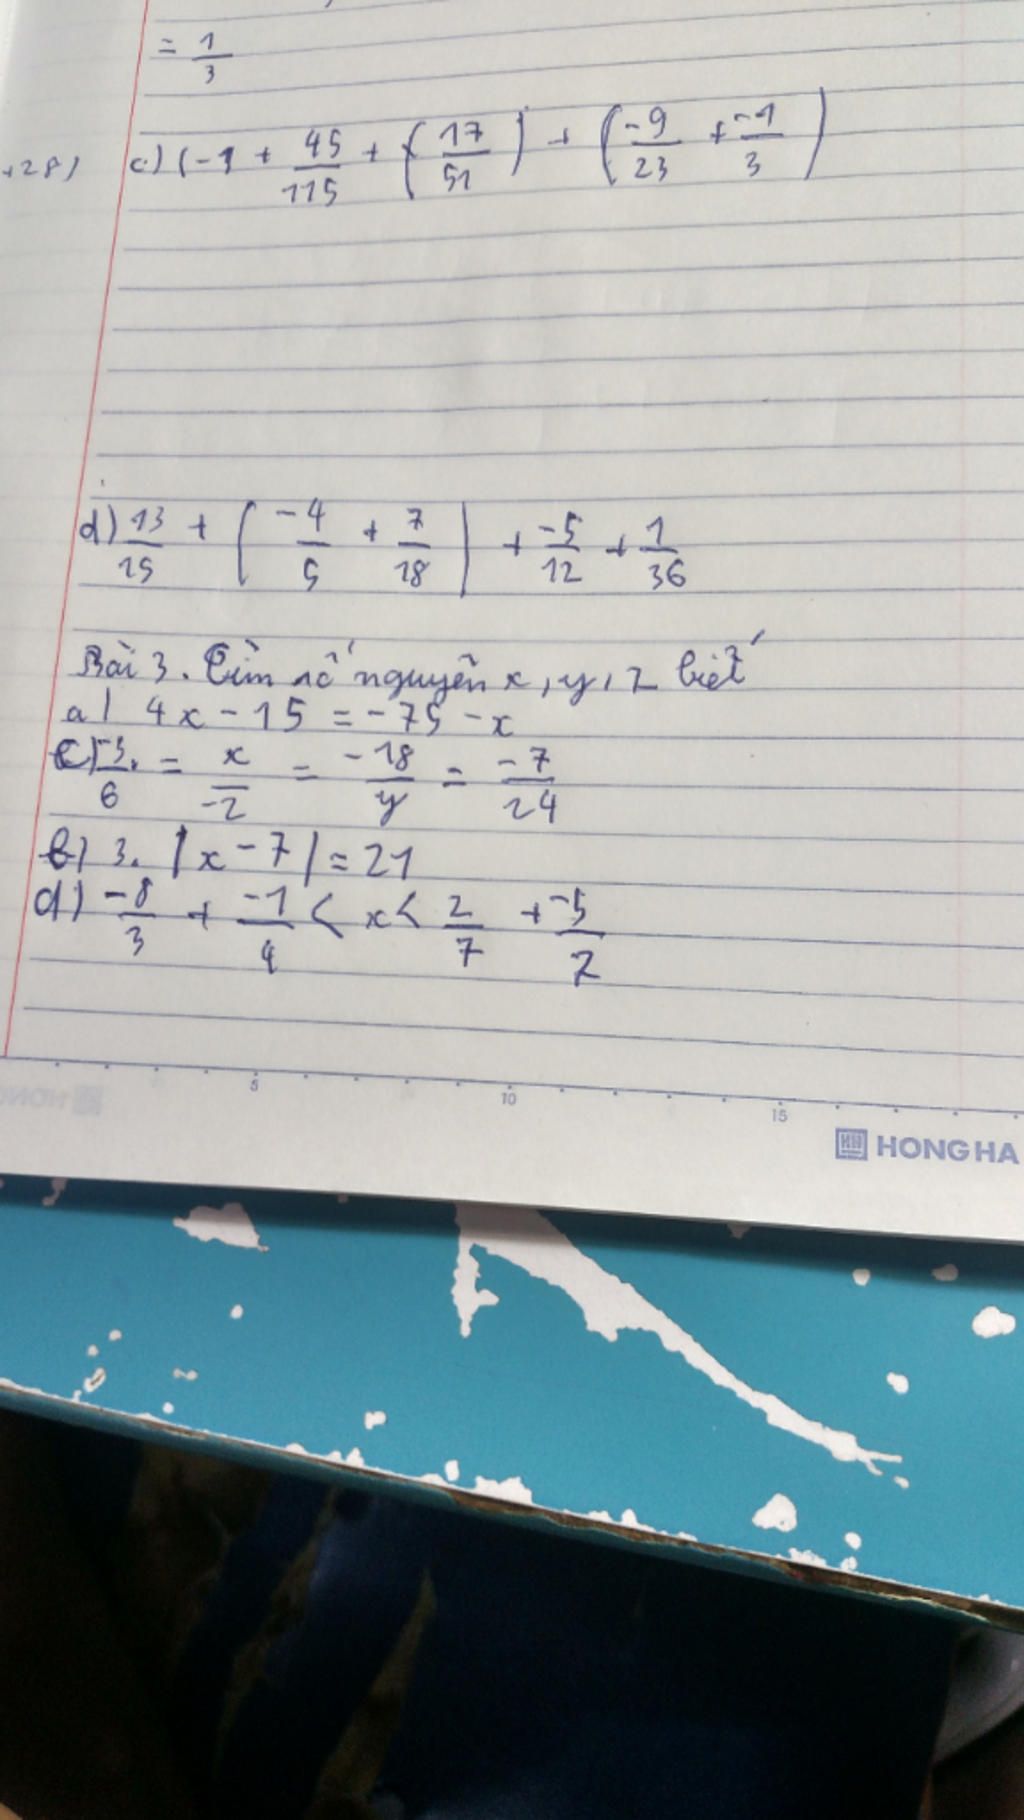 = 1/3
+28)
c) (-1 + 45/115 + (17/51) + (-9/23 + -1/3)
d) 13/15 + (-4/5 + 7/18) + -5/12 + 1/36
Bài 3. Tìm số nguyên x, y, z biết
a) 4x - 15 = -75 - x
c) -3/6 = x/-2 = -18/y = -7/24
b) 3. |x - 7| = 21
d) -8/3 + -1/4 < x < 2/7 + -5/7
5 10 15
HONG HA